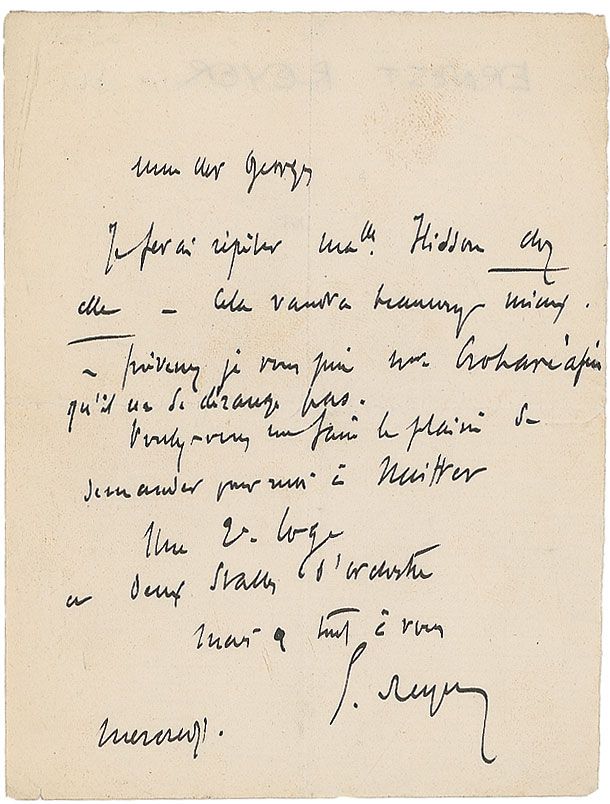 mon cher Georges
Je ferai répéter Mad.lle Hisson chez
elle – Cela vaudra beaucoup mieux.
– prévenez je vous prie Mr Croharé afin
qu'il ne se dérange pas.
Voulez-vous me faire le plaisir de
demander pour moi à Nuitter
Une 2e loge
et deux Stalles d'orchestre
merci & tout à vous
E. Reyer
mercredi.